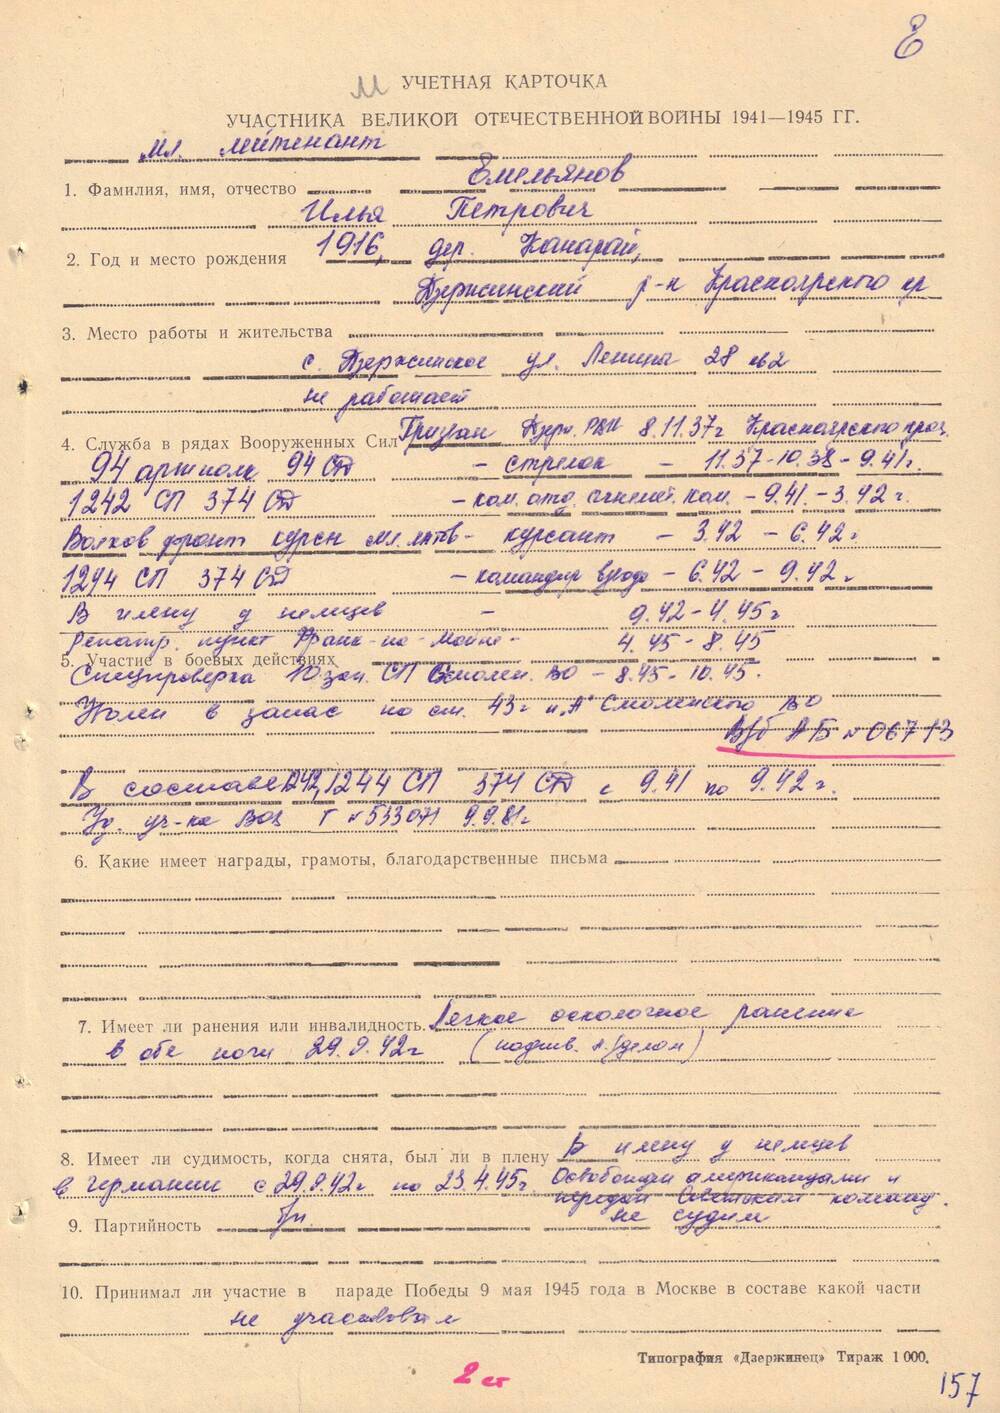 Е
М УЧЕТНАЯ КАРТОЧКА
УЧАСТНИКА ВЕЛИКОЙ ОТЕЧЕСТВЕННОЙ ВОЙНЫ 1941—1945 ГГ.
мл. лейтенант
1. Фамилия, имя, отчество Емельянов
Илья Петрович
2. Год и место рождения 1916, дер. Канарай,
Дзержинский р-н Красноярского кр
3. Место работы и жительства
с. Дзержинское ул. Ленина 28 кв 2
не работает
4. Служба в рядах Вооруженных Сил Призван Дзерж. РВК 8.11.37г Красноярского края.
94 артполк 94 СД – стрелок – 11.37-10.38 – 9.41г.
1242 СП 374 СД – ком. отд. ком. – 9.41 – 3.42 г.
Волхов фронт курсы мл. л-тов – курсант – 3.42 – 6.42г
1244 СП 374 СД – командир взвода – 6.42 – 9.42г
В плену у немцев – 9.42 – 4.45г
Репатр. пункт Франк-на-Майне – 4.45 – 8.45
5. Участие в боевых действиях
Спецпроверка 10 зап. СП Смолен. ВО – 8.45 – 10.45.
Уволен в запас по ст. 43 п „А" Смоленского ВО
В/б АБ № 06713
В составе 1242, 1244 СП 374 СД с 9.41 по 9.42г.
Уд. уч-ка ВОВ Г № 533071 9.9.81г
6. Какие имеет награды, грамоты, благодарственные письма
7. Имеет ли ранения или инвалидность. Легкое осколочное ранение
в обе ноги 29.9.42г (подтв. л./делом)
8. Имеет ли судимость, когда снята, был ли в плену В плену у немцев
в Германии с 29.9.42г по 23.4.45г. Освобожден американцами и
передан Советским команд.
не судим
9. Партийность б/п.
10. Принимал ли участие в параде Победы 9 мая 1945 года в Москве в составе какой части
не участвовал
Типография «Дзержинец» Тираж 1 000.
2 ст
157